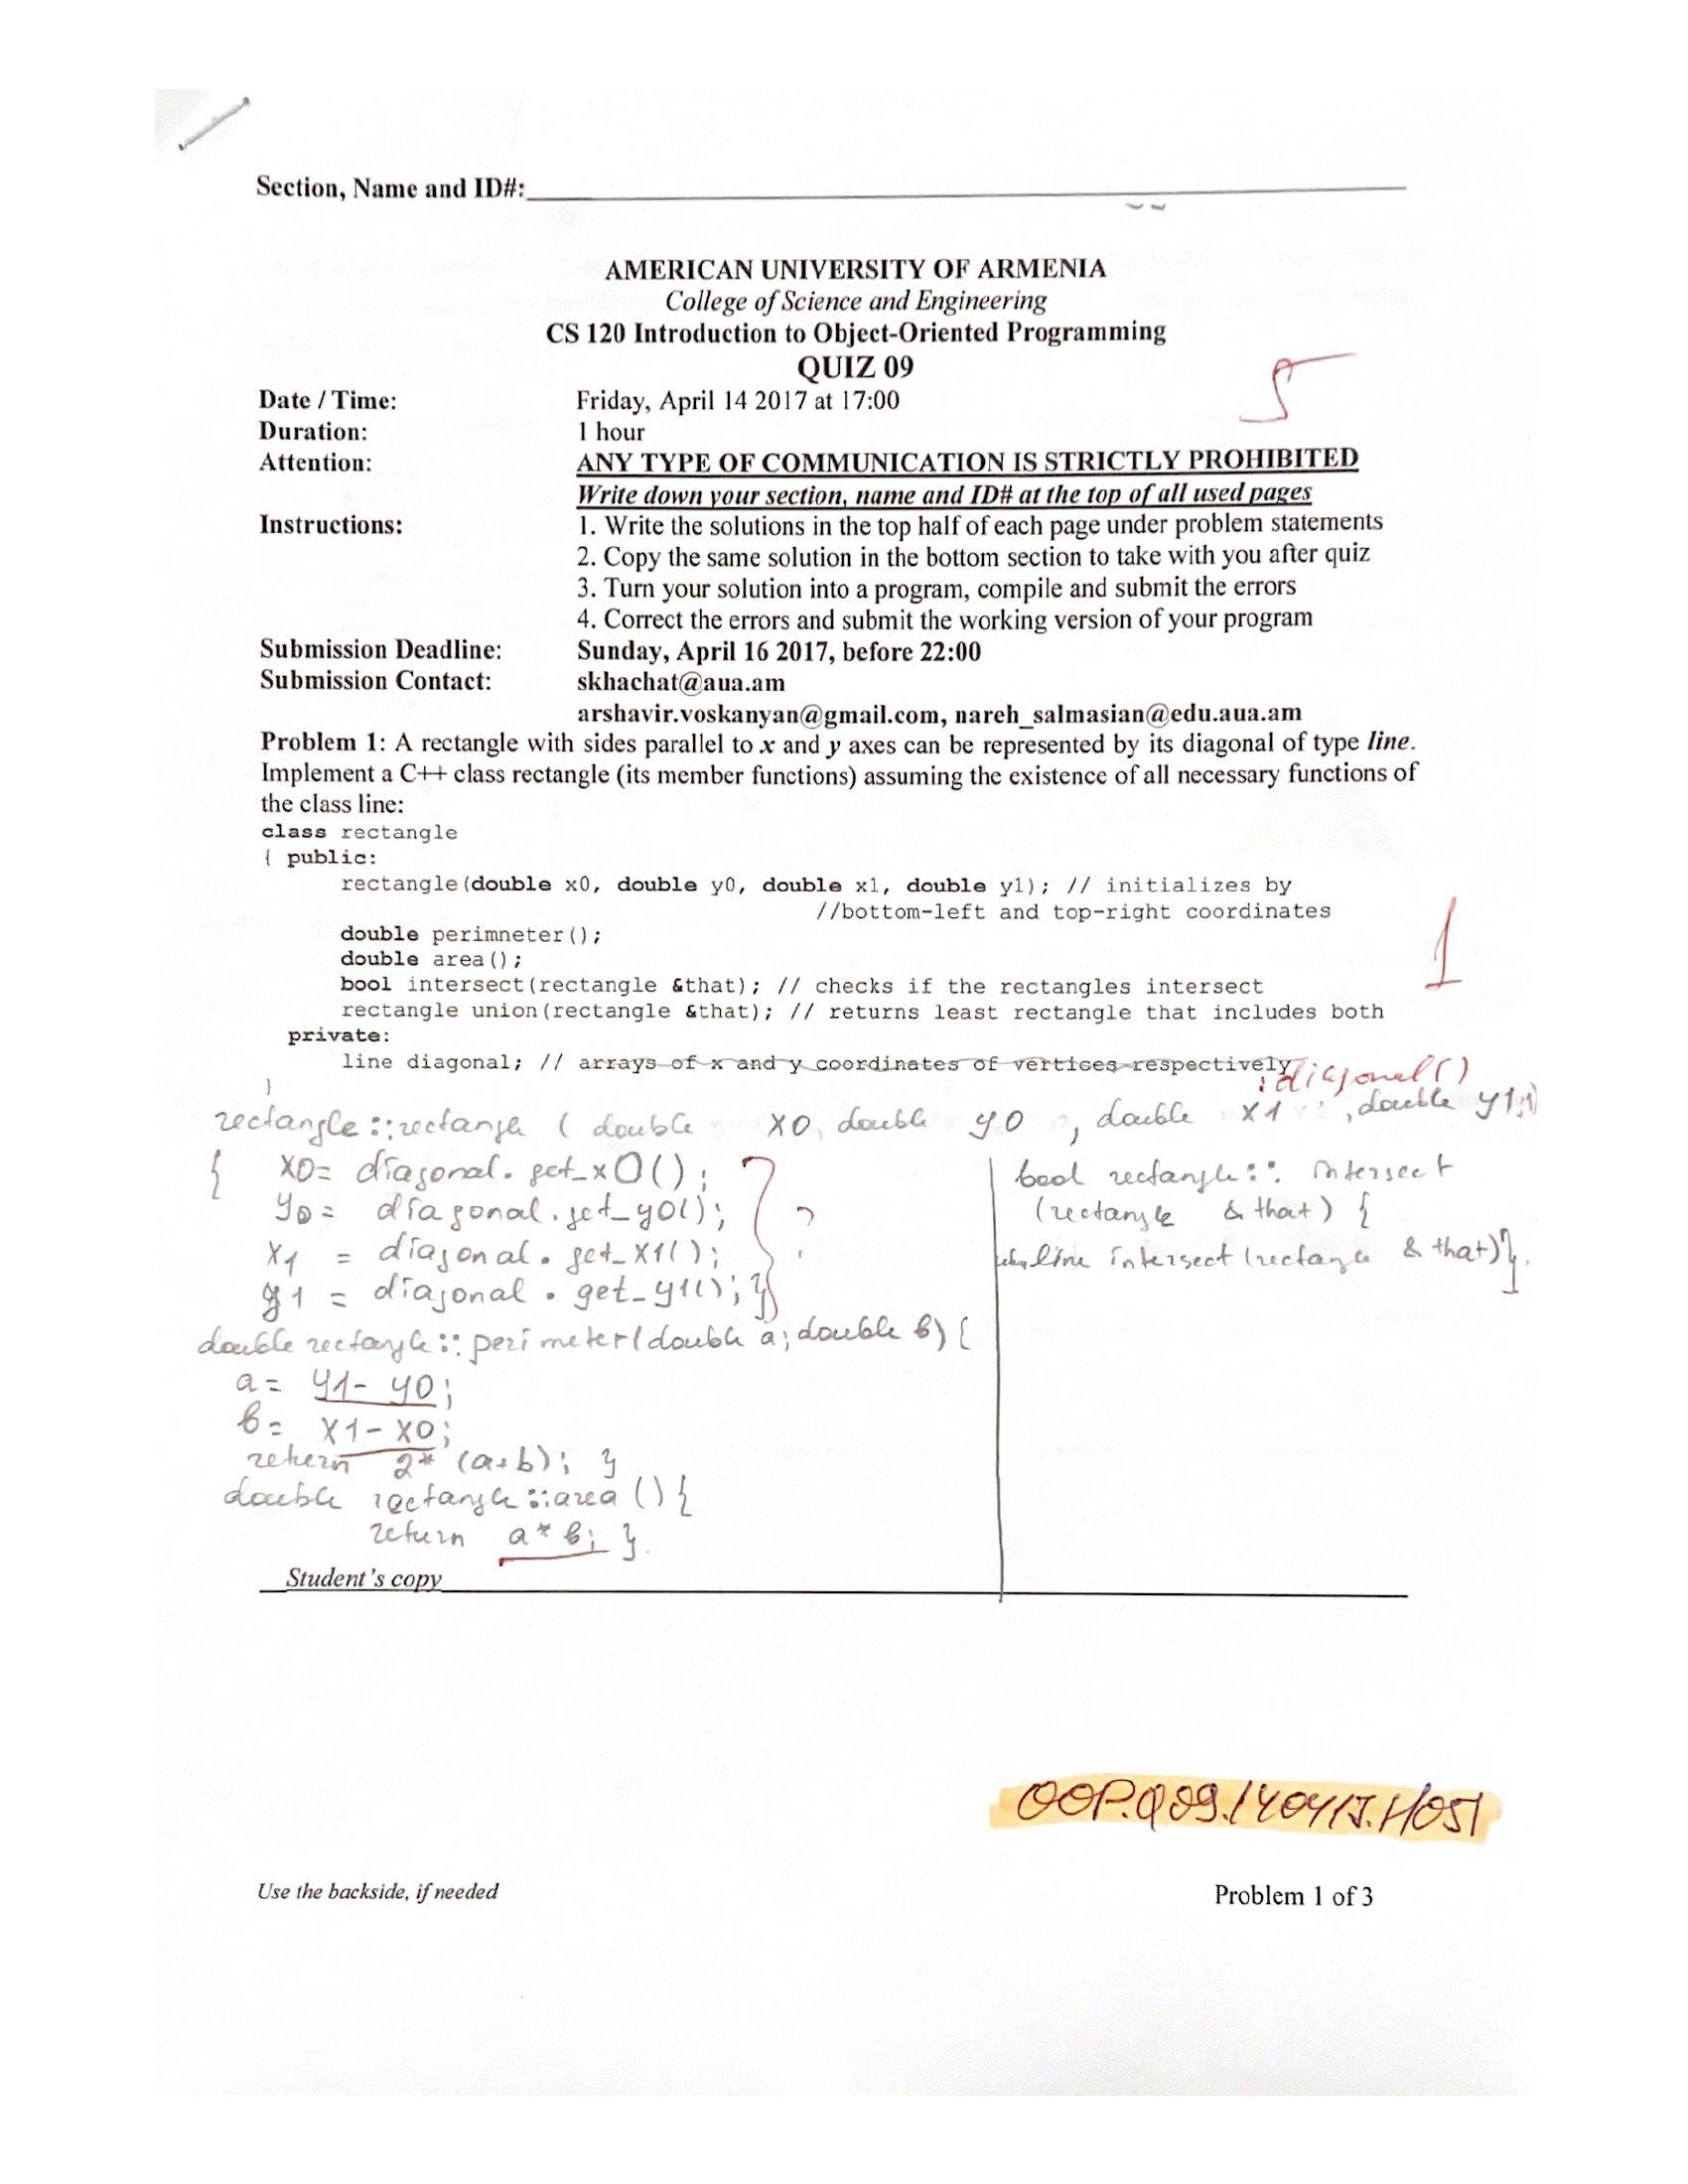 Section, Name and ID#:
AMERICAN UNIVERSITY OF ARMENIA
College of Science and Engineering
CS 120 Introduction to Object-Oriented Programming
QUIZ 09
5
Date / Time: Friday, April 14 2017 at 17:00
Duration: 1 hour
Attention: ANY TYPE OF COMMUNICATION IS STRICTLY PROHIBITED
Write down your section, name and ID# at the top of all used pages
Instructions: 1. Write the solutions in the top half of each page under problem statements
2. Copy the same solution in the bottom section to take with you after quiz
3. Turn your solution into a program, compile and submit the errors
4. Correct the errors and submit the working version of your program
Submission Deadline: Sunday, April 16 2017, before 22:00
Submission Contact: skhachat@aua.am
arshavir.voskanyan@gmail.com, nareh_salmasian@edu.aua.am
Problem 1: A rectangle with sides parallel to x and y axes can be represented by its diagonal of type line.
Implement a C++ class rectangle (its member functions) assuming the existence of all necessary functions of
the class line:
class rectangle
{ public:
rectangle(double x0, double y0, double x1, double y1); // initializes by
//bottom-left and top-right coordinates
double perimneter();
double area();
bool intersect(rectangle &that); // checks if the rectangles intersect
rectangle union(rectangle &that); // returns least rectangle that includes both
1
private:
line diagonal; // arrays of x and y coordinates of vertices respectively
}
: diagonal()
rectangle::rectangle ( double x0, double y0 , double x1 , double y1)
{ x0= diagonal. get_x0();
y0= diagonal.get_y0();
x1 = diagonal. get_x1();
y1 = diagonal . get_y1(); }
?
double rectangle:: perimeter(double a; double b) {
a= y1- y0;
b= x1- x0;
return 2* (a+b); }
double rectangle::area () {
return a* b; }
bool rectangle:: intersect
(rectangle & that) {
line intersect (rectangle & that)}.
Student's copy
OOP.Q09.140417.H051
Use the backside, if needed
Problem 1 of 3